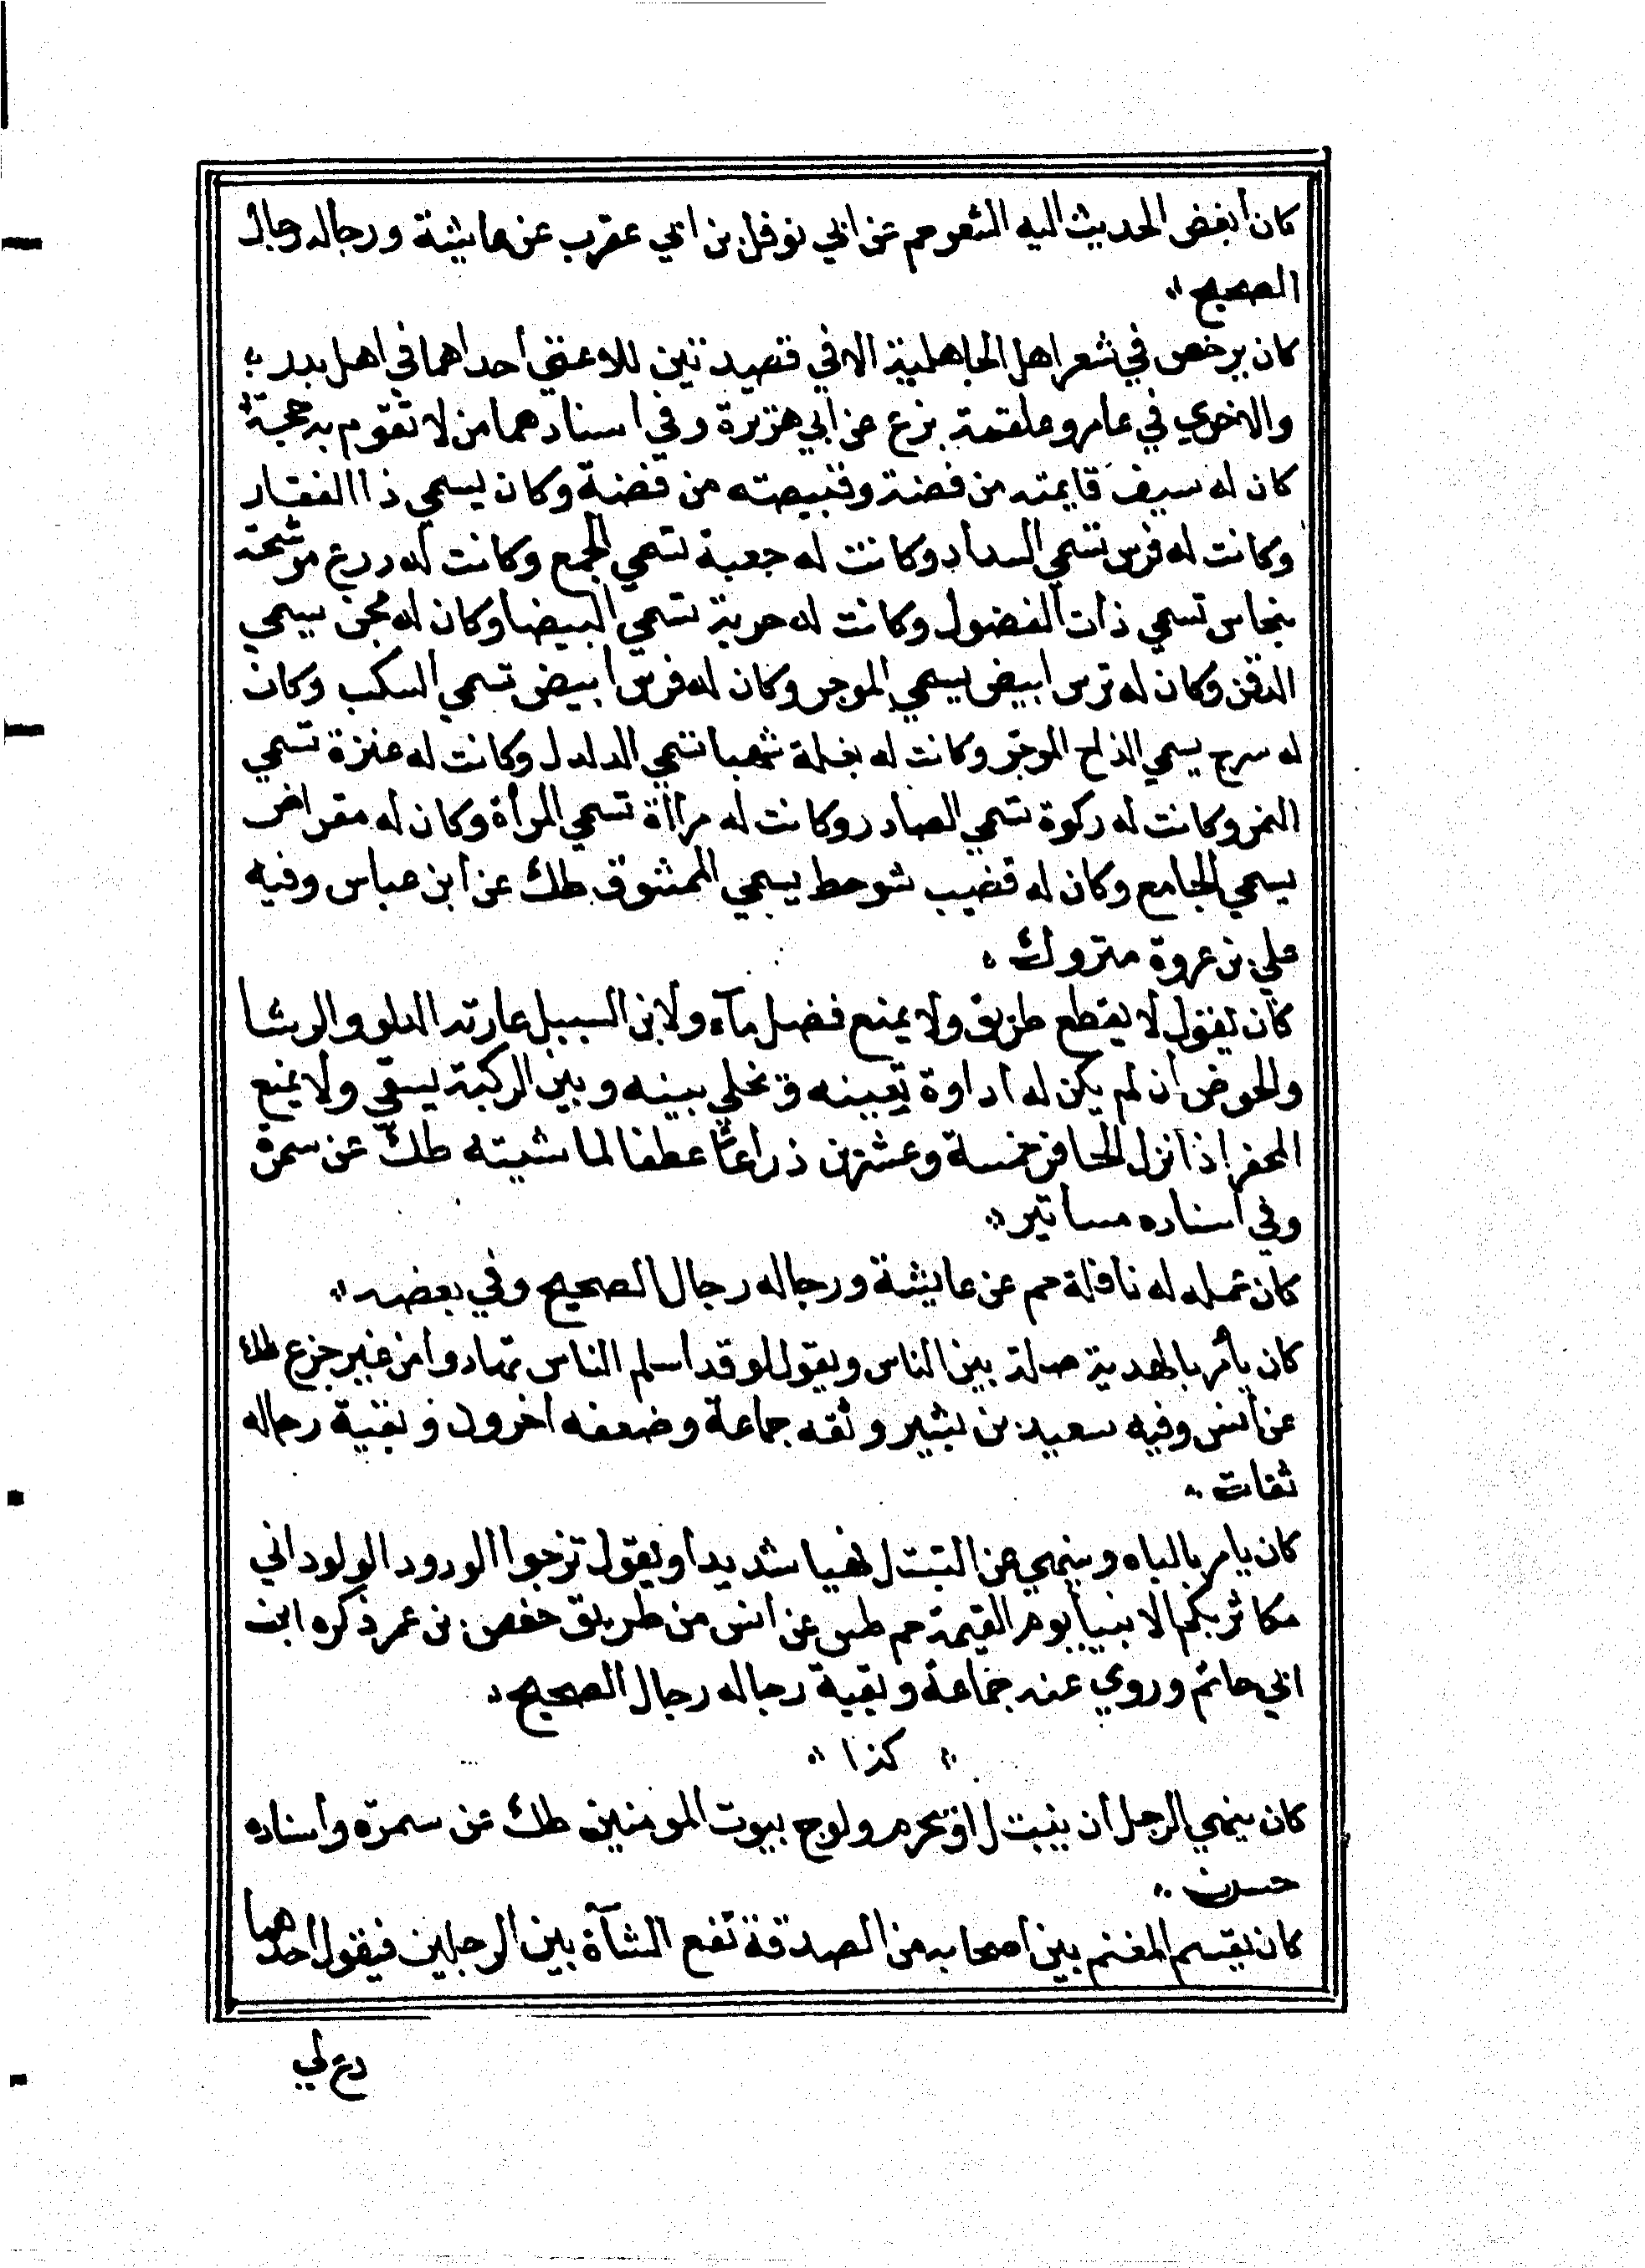 كان أبغض الحديث اليه الشعر حم عن ابي نوفل بن ابي عقرب عن عايشة ورجاله رجال
الصحيح
كان يرخص في شعر اهل الجاهلية الا في قصيدتين للاعشي احداهما في اهل بدر
والاخري في عامر وعلقمة بزع عن ابي هريرة وفي اسنادهما من لا تقوم به حجة
كان له سيف قايمته من فضة وقبيصته من فضة وكان يسمي ذا الفقار
وكانت له فرس تسمي السداد وكانت له جعبة تسمي الجمع وكانت له درع موشحة
بنحاس تسمي ذات الفضول وكانت له حربة تسمي البيضا وكان له مجن يسمي
الدقن وكان له ترس ابيض يسمي الموجر وكان له فرس ابيض تسمي السكب وكان
له سرج يسمي الداح الموجر وكانت له بغلة شهبا تسمي الدلدل وكانت له عنزة تسمي
النمر وكانت له ركوة تسمي الصادر وكانت له مرااة تسمي المرأة وكان له مقراض
يسمي الجامع وكان له قضيب شوحط يسمي الممشوق طك عن ابن عباس وفيه
علي بن عروة متروك
كان يقول لا يقطع طريق ولا يمنع فضل مآء ولابن السبيل عارته الدلو والرشا
والحوض ان لم يكن له اداوة تعينه ويخلي بينه وبين الركبة يسقي ولا يمنع
الحفر اذا نزل الحافر خمسة وعشرين ذراعًا عطفا لماشيته طك عن سمرة
وفي اسناده مساتير
كان عمله له نافلة حم عن عايشة ورجاله رجال الصحيح وفي بعضه
كان يأمر بالهدية صلة بين الناس ويقول لو قد اسلم الناس تهادوا من غير جزع طك
عن أنس وفيه سعيد بن بشير وثقه جماعة وضعفه اخرون وبقية رجاله
ثقات
كان يامر بالباه وينهي عن التبتل نهيا شديدا ويقول تزجوا الورود الولود اني
مكاثر بكم الانبيا يوم القيمة حم طس عن انس من طريق حفص بن عمر ذكره ابن
ابي حاتم وروي عنه جماعة وبقية رجاله رجال الصحيح
كذا
كان ينهي الرجل ان يتبتل او يحرم ولوج بيوت المومنين طك عن سمرة واسناده
حسن
كان يقسم المغنم بين اصحابه من الصدقة تقع الشآة بين الرجلين فيقول احدهما
دع لي